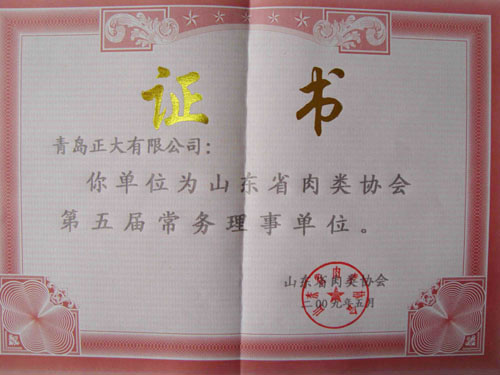 证书
青岛正大有限公司：
你单位为山东省肉类协会
第五届常务理事单位。
山东省肉类协会
二00九年五月